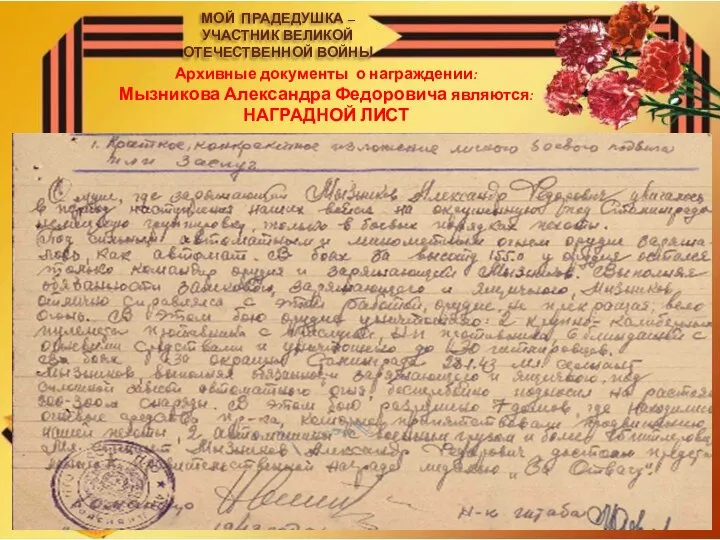 МОЙ ПРАДЕДУШКА –
УЧАСТНИК ВЕЛИКОЙ
ОТЕЧЕСТВЕННОЙ ВОЙНЫ
Архивные документы о награждении:
Мызникова Александра Федоровича являются:
НАГРАДНОЙ ЛИСТ
1. Краткое, конкретное изложение личного боевого подвига
или заслуг
Орудие, где заряжающий Мызников Александр Федорович двигалось
в период наступления наших войск на окруженную под Сталинградом
немецкую группировку, только в боевых порядках пехоты.
Под сильным автоматным и минометным огнем орудие заряжа-
лось, как автомат. В боях за высоту 155.0 у орудия остался
только командир орудия и заряжающий Мызников. Выполняя
обязанности замкового, заряжающего и ящичного, Мызников
отлично справлялся с этой работой, орудие, не прекращая, вело
огонь. В этом бою орудие уничтожило: 2 крупно-калиберных
пулемета противника с прислугой, 6 блиндажей с
огневыми средствами и уничтожено до 30 гитлеровцев.
В боях на окраине Сталинграда 28.1.43 мл. сержант
Мызников, выполняя обязанности заряжающего и ящичного, под
огня бесперебойно подносил на расстоя
200-300м снаряды. В этом бою разрушено 7 домов, где находились
огневые средства пр-ка, которые препятствовали продвижению
нашей пехоты, 2 автомашины с военным грузом и более 15 гитлеровц
Мл. сержант Мызников Александр Федорович достоин предст
правительственной награде медалью "За Отвагу".
Н-к штаба